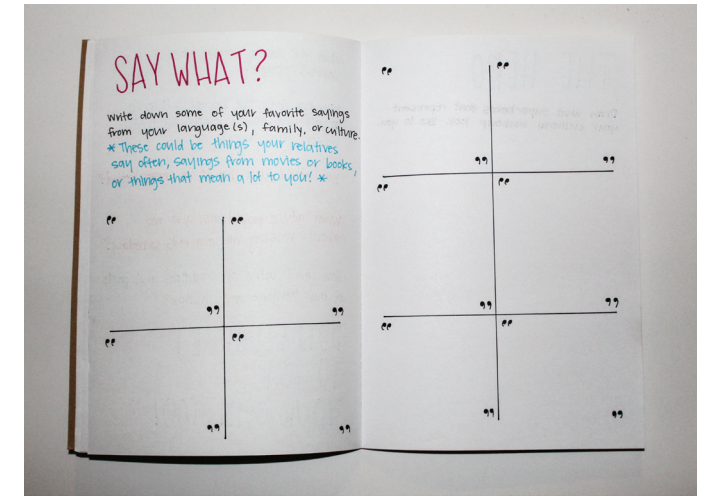 SAY WHAT?
Write down some of your favorite sayings
from your language(s), family, or culture.
* These could be things your relatives
say often, sayings from movies or books,
or things that mean a lot to you! *
“ “
” ”
“ “
” ”
“ “
” ”
“ “
” ”
“ “
” ”